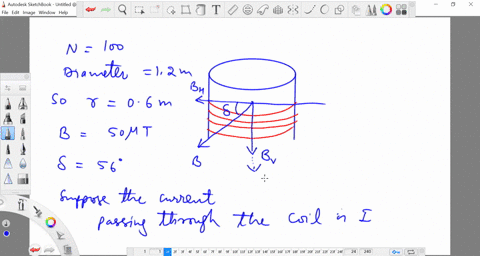 Autodesk SketchBook - Untitled
N = 100
Diameter = 1.2 m
So r = 0.6 m
B = 50 μT
δ = 56°
B_H
δ
B
B_V
Suppose the current
passing through the coil is I